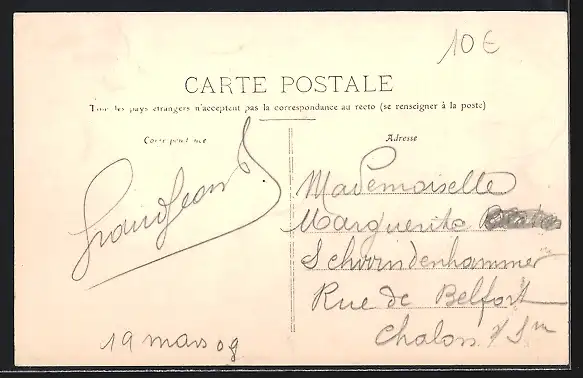 10 €
CARTE POSTALE
Tous les pays étrangers n'acceptent pas la correspondance au recto (se renseigner à la poste)
Correspondance
Adresse
GrandJean
Mademoiselle
Marguerite
Schwindenhammer
Rue de Belfort
Chalon s/ Sne
19 mars 08